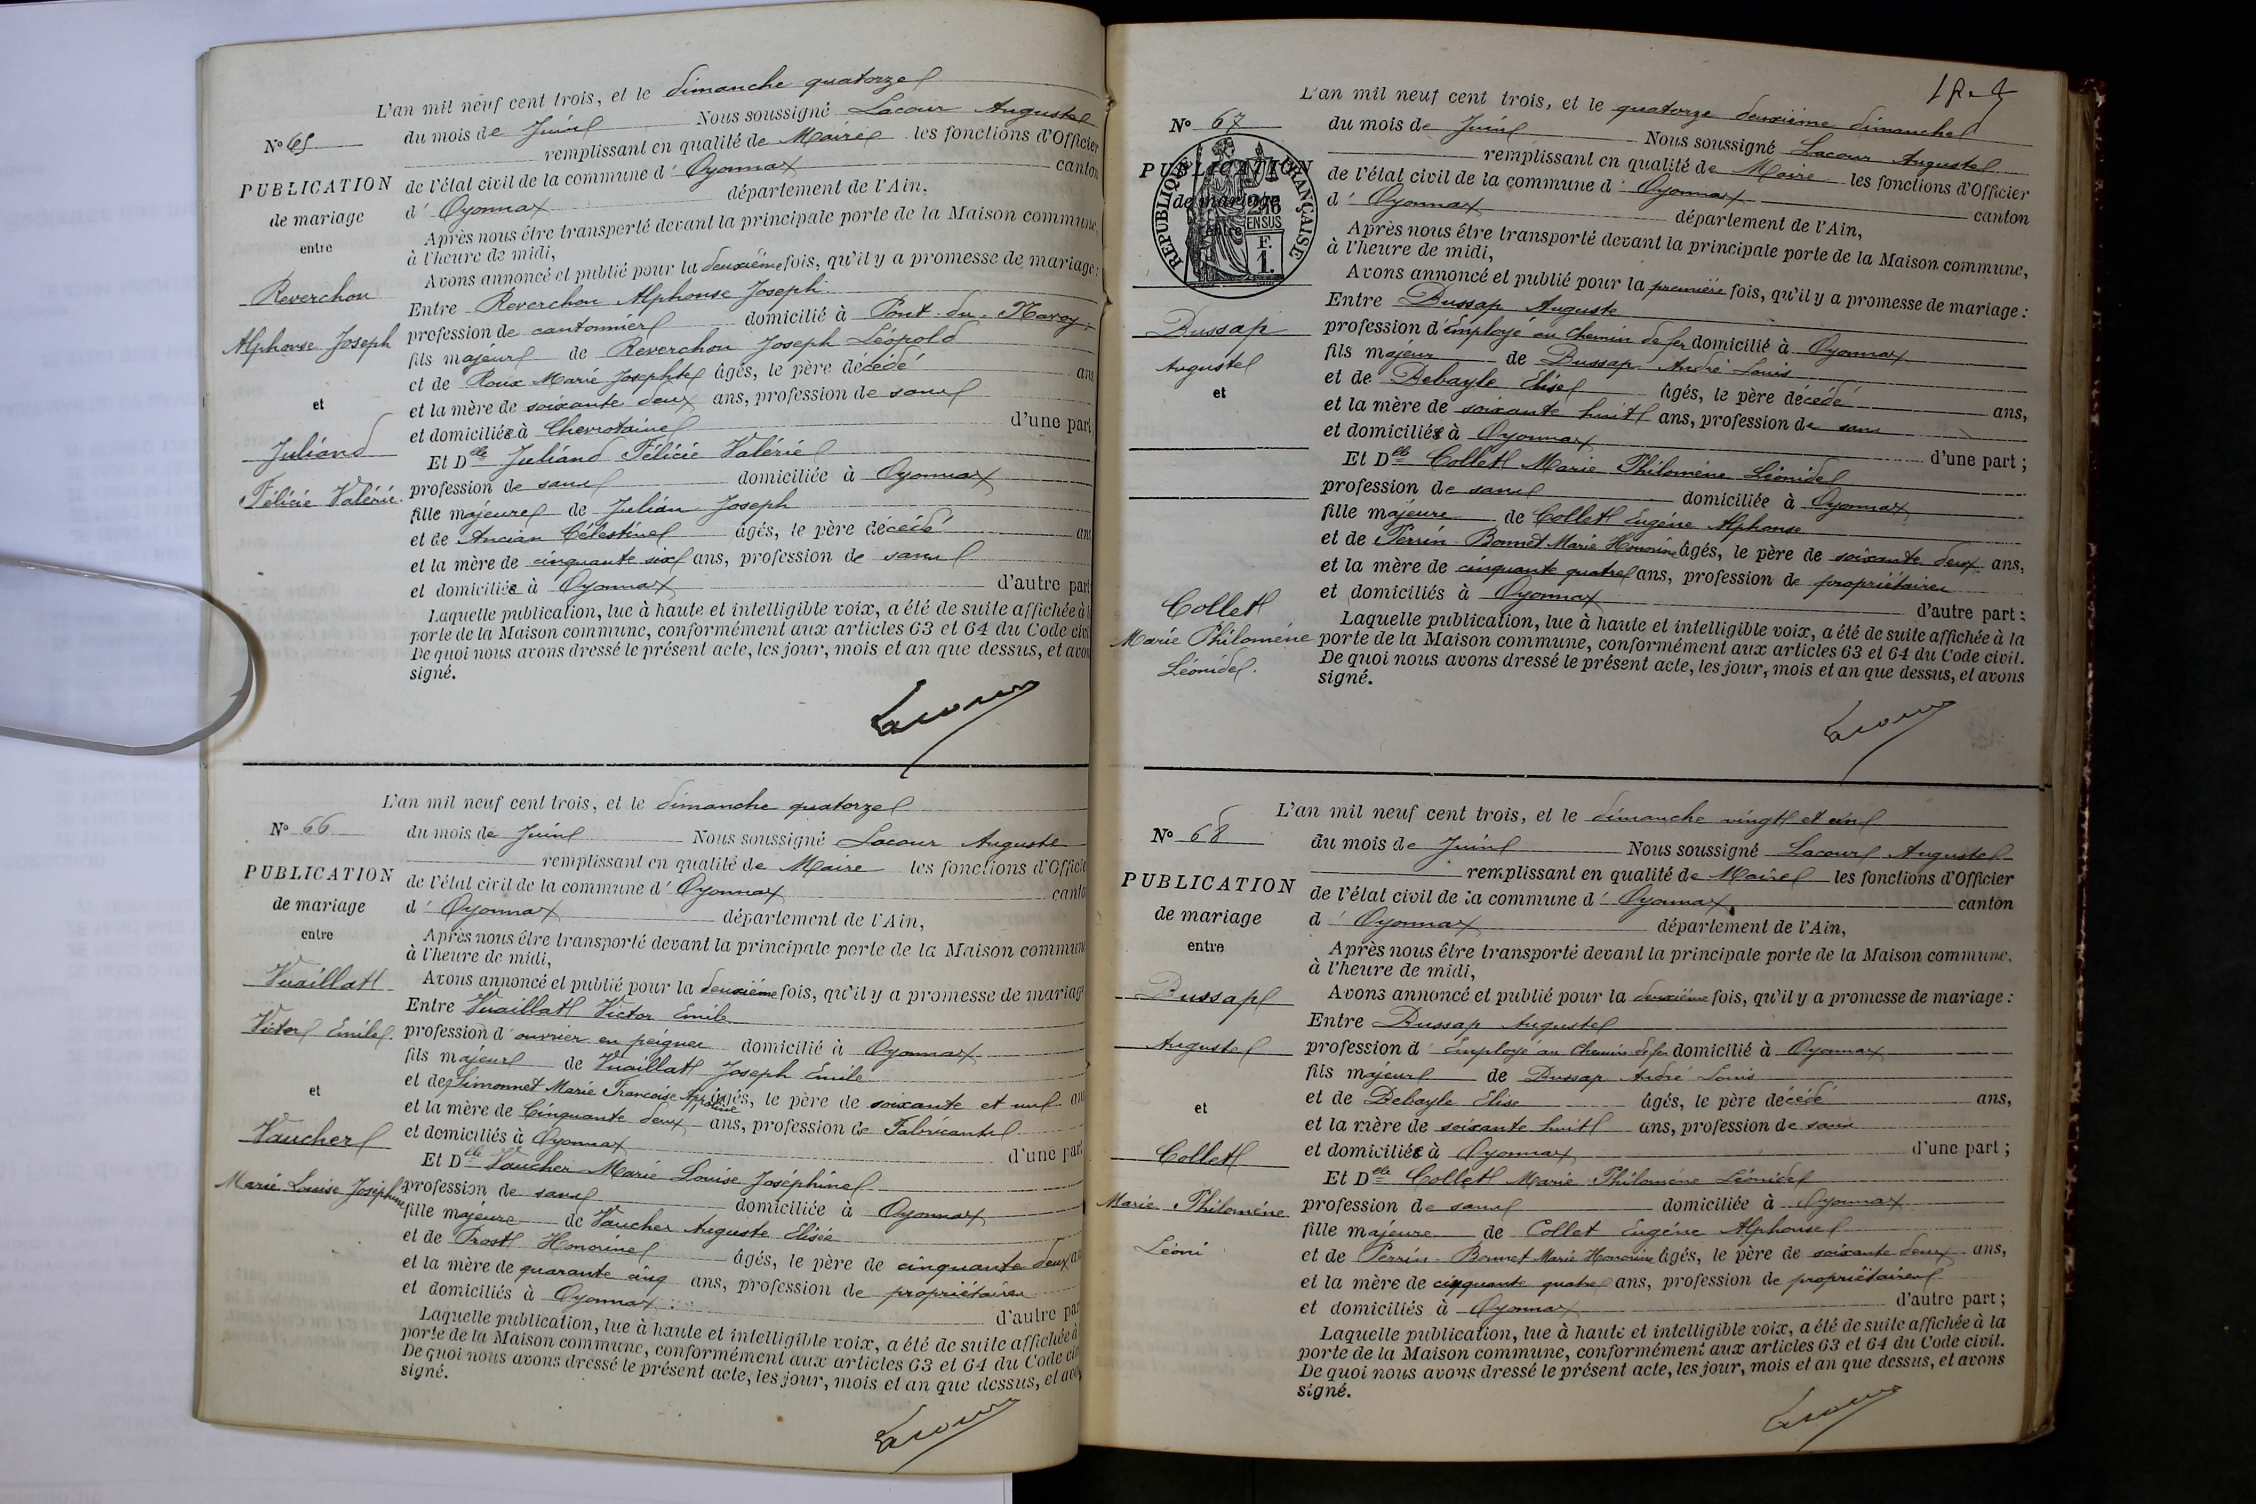 L'an mil neuf cent trois, et le dimanche quatorze
N° 65 du mois de Juin Nous soussigné Lacour Auguste
remplissant en qualité de Maire les fonctions d'Officier
PUBLICATION de l'état civil de la commune d' Oyonnax canton
de mariage d' Oyonnax département de l'Ain,
entre Après nous être transporté devant la principale porte de la Maison commune,
à l'heure de midi,
Avons annoncé et publié pour la deuxième fois, qu'il y a promesse de mariage :
Reverchon Entre Reverchon Alphonse Joseph
Alphonse Joseph profession de cantonnier domicilié à Pont du Navoy
fils majeur de Reverchon Joseph Léopold
et de Roux Marie Josephte âgés, le père décédé ans
et et la mère de soixante deux ans, profession de sans
et domiciliée à Chevrotaine d'une part
Juliand Et Dlle Juliand Félicie Valérie
Félicie Valérie profession de sans domiciliée à Oyonnax
fille majeure de Julian Joseph
et de Ancian Célestine âgés, le père décédé ans
et la mère de cinquante six ans, profession de sans
et domiciliée à Oyonnax d'autre part
Laquelle publication, lue à haute et intelligible voix, a été de suite affichée à la
porte de la Maison commune, conformément aux articles 63 et 64 du Code civil
De quoi nous avons dressé le présent acte, les jour, mois et an que dessus, et avons
signé.
Lacour
L'an mil neuf cent trois, et le dimanche quatorze
N° 66 du mois de Juin Nous soussigné Lacour Auguste
remplissant en qualité de Maire les fonctions d'Officie
PUBLICATION de l'état civil de la commune d' Oyonnax canto
de mariage d' Oyonnax département de l'Ain,
entre Après nous être transporté devant la principale porte de la Maison commune
à l'heure de midi,
Vuaillat Avons annoncé et publié pour la deuxième fois, qu'il y a promesse de mariage
Entre Vuaillat Victor Emile
Victor Emile. profession d' ouvrier en peignes domicilié à Oyonnax
fils majeur de Vuaillat Joseph Emile
et de Simonnet Marie Francoise âgés, le père de soixante et un an
et et la mère de Cinquante deux ans, profession de Fabricants
Vaucher et domiciliés à Oyonnax d'une par
Et Dlle Vaucher Marie Louise Joséphine
Marie Louise Joséphine profession de sans domiciliée à Oyonnax
fille majeure de Vaucher Auguste Elisée
et de Prost Honorine âgés, le père de cinquante deux an
et la mère de quarante cinq ans, profession de propriétaires
et domiciliés à Oyonnax d'autre par
Laquelle publication, lue à haute et intelligible voix, a été de suite affichée à
porte de la Maison commune, conformément aux articles 63 et 64 du Code civ
De quoi nous avons dressé le présent acte, les jour, mois et an que dessus, et avon
signé.
Lacour
L'an mil neuf cent trois, et le quatorze deuxième dimanche
N° 67 du mois de Juin Nous soussigné Lacour Auguste
remplissant en qualité de Maire les fonctions d'Officier
PUBLICATION de l'état civil de la commune d' Oyonnax canton
de mariage d' Oyonnax département de l'Ain,
entre Après nous être transporté devant la principale porte de la Maison commune,
à l'heure de midi,
RÉPUBLIQUE FRANÇAISE
EN SUS
F.
1.
Avons annoncé et publié pour la première fois, qu'il y a promesse de mariage :
Entre Dussap Auguste
Dussap profession d'Employé au chemin de fer domicilié à Oyonnax
Auguste fils majeur de Dussap André Louis
et de Debayle Elise âgés, le père décédé ans,
et et la mère de soixante huit ans, profession de sans
et domiciliée à Oyonnax d'une part ;
Et Dlle Collet Marie Philomène Léonide
profession de sans domiciliée à Oyonnax
fille majeure de Collet Eugène Alphonse
et de Perrin-Bonnet Marie Honorine âgés, le père de soixante deux ans,
et la mère de cinquante quatre ans, profession de propriétaires
Collet et domiciliés à Oyonnax d'autre part :
Laquelle publication, lue à haute et intelligible voix, a été de suite affichée à la
Marie Philomène porte de la Maison commune, conformément aux articles 63 et 64 du Code civil.
Léonide. De quoi nous avons dressé le présent acte, les jour, mois et an que dessus, et avons
signé.
Lacour
L'an mil neuf cent trois, et le dimanche vingt et un
N° 68 du mois de Juin Nous soussigné Lacour Auguste
remplissant en qualité de Maire les fonctions d'Officier
PUBLICATION de l'état civil de la commune d' Oyonnax canton
de mariage d' Oyonnax département de l'Ain,
entre Après nous être transporté devant la principale porte de la Maison commune,
à l'heure de midi,
Dussap Avons annoncé et publié pour la deuxième fois, qu'il y a promesse de mariage :
Entre Dussap Auguste
Auguste profession d' Employé au Chemin de fer domicilié à Oyonnax
fils majeur de Dussap André Louis
et de Debayle Elise âgés, le père décédé ans,
et et la mère de soixante huit ans, profession de sans
Collet et domiciliée à Oyonnax d'une part ;
Et Dlle Collet Marie Philomène Léonide
Marie Philomène profession de sans domiciliée à Oyonnax
fille majeure de Collet Eugène Alphonse
Léoni et de Perrin-Bonnet Marie Honorine âgés, le père de soixante deux ans,
et la mère de cinquante quatre ans, profession de propriétaires
et domiciliés à Oyonnax d'autre part ;
Laquelle publication, lue à haute et intelligible voix, a été de suite affichée à la
porte de la Maison commune, conformément aux articles 63 et 64 du Code civil.
De quoi nous avons dressé le présent acte, les jour, mois et an que dessus, et avons
signé.
Lacour